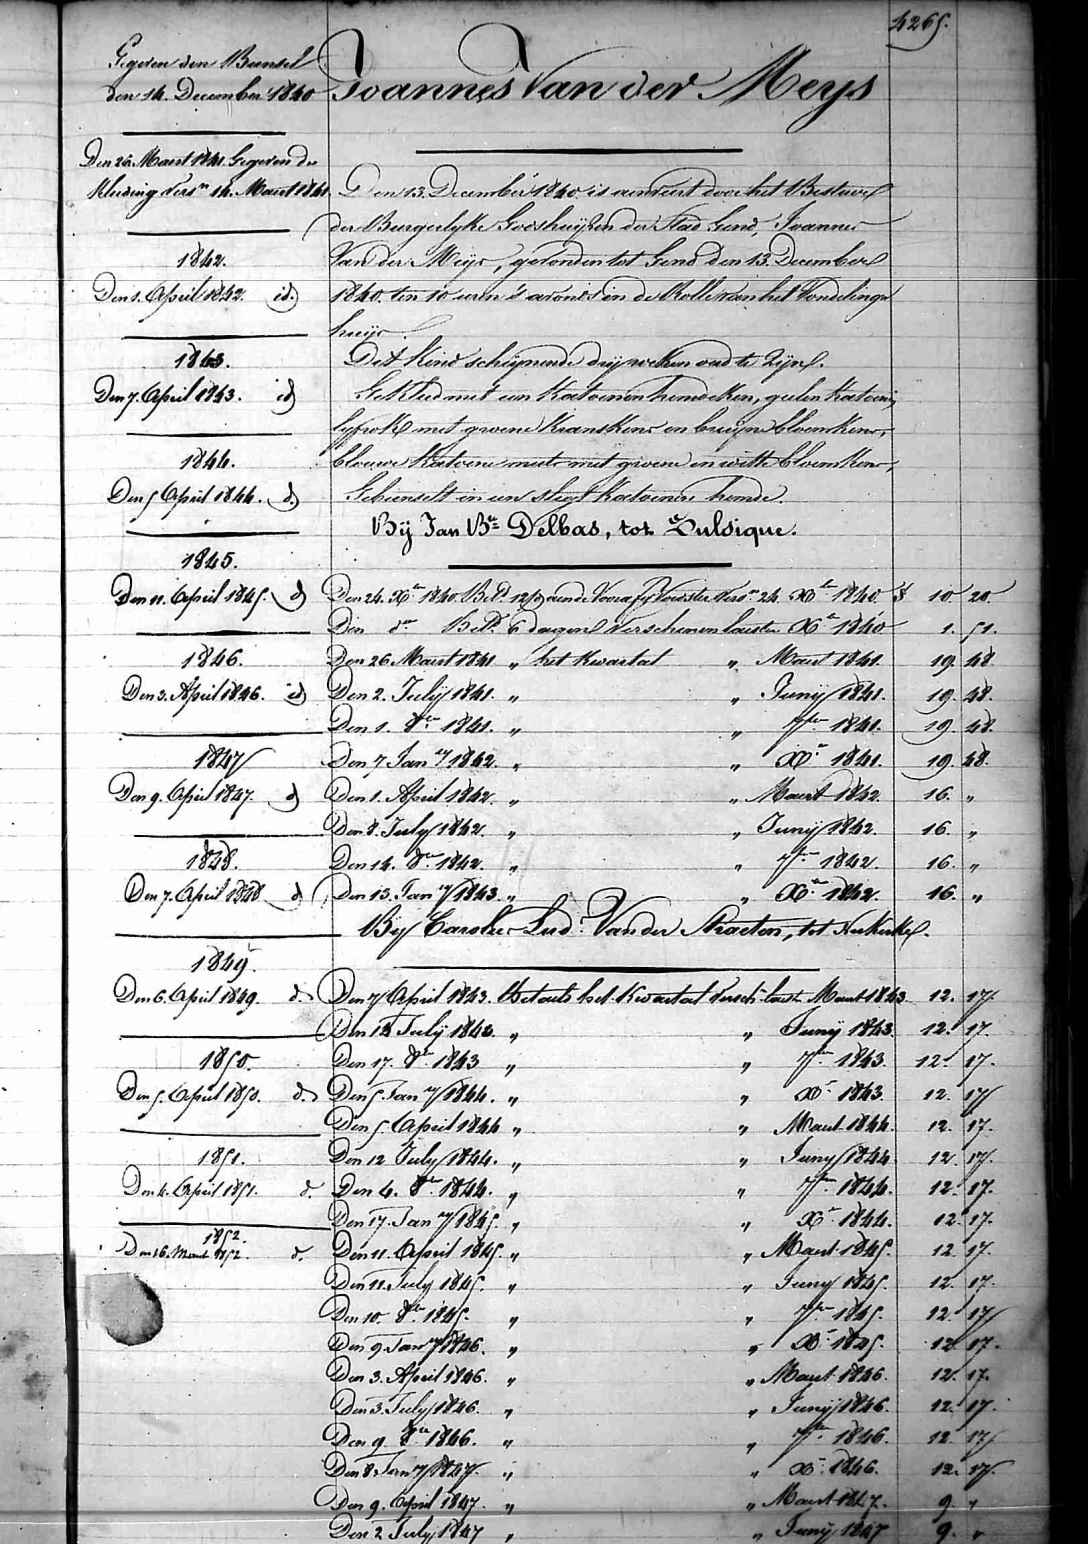 4265.
Gegeven den Bunsel
den 14. December 1840
Joannes Van der Meys
Den 26. Maert 1841. Gegeven de
Kleding Vers.n 14. Maert 1841.
1842.
Den 1. April 1842. id.
1843.
Den 7. April 1843. id
1844.
Den 5 April 1844. d.
1845.
Den 11. April 1845. d
1846.
Den 3. April 1846. id
1847
Den 9. April 1847. d
1848.
Den 7. April 1848 d
1849.
Den 6. April 1849. d.
1850.
Den 5. April 1850. d.
1851.
Den 4. April 1851. d.
1852.
Den 26. Maert 1852. d.
Den 13. December 1840. is aenveert door het Bestuer
der Burgerlyke Godshuijzen der Stad Gend, Joannes
Van der Meijs, gevonden tot Gend den 13. December
1840. ten 10 uren 's avonds in de Rolle van het Vondelings
huijs.
Dit Kind scheijnende drij weken oud te Zijn.
Gekleed met een Katoenen hemdeken, geelen Katoen
lyfrok met groene Kranskens en bruijne bloemkens,
blouwe Katoene muts met groene en witte bloemkens,
Gebunselt in een slegt Katoenen hemde.
Bij Jan Bte Delbas, tot Zulsique.
Den 24. Xr 1840. Vers.n 24. Xr 1840, 10 20
Den do Bet. 6 dagen Verschenen laesten Xr 1840 1. 51.
Den 26 Maert 1841 „ het Kwartal „ Maert 1841. 19. 48
Den 2. July 1841. „ „ Junij 1841. 19. 48.
Den 1. 8er 1841. „ „ 7ber 1841. 19. 48.
Den 7 Jan.y 1842. „ „ Xr 1841. 19. 48.
Den 1. April 1842. „ „ Maert 1842. 16. „
Den 8. July 1842. „ „ Junij 1842. 16. „
Den 14. 8er 1842. „ „ 7r 1842 16. „
Den 13. Jan.y 1843. „ „ Xr 1842. 16. „
By Carolus Lud. Van der Straeten, tot Nukerke.
Den 7 April 1843. Betaelt het Kwartal Versch. laest. Maert 1843 12. 17.
Den 12 July 1843. „ „ Junij 1843. 12. 17.
Den 17. 8er 1843 „ „ 7er 1843. 12. 17.
Den 5. Jan.y 1844. „ „ Xr 1843. 12. 17
Den 5. April 1844 „ „ Maert 1844. 12. 17.
Den 12 July 1844. „ „ Juny 1844 12. 17.
Den 4. 8er 1844. „ „ 7er 1844. 12. 17.
Den 17. Jan.y 1845. „ „ Xr 1844. 12. 17.
Den 11. April 1845. „ „ Maert 1845. 12 17.
Den 11. July 1845. „ „ Juny 1845. 12. 17.
Den 10. 8er 1845. „ „ 7er 1845. 12. 17
Den 9. Jan.y 1846. „ „ Xr 1845. 12 17.
Den 3. April 1846. „ „ Maert 1846. 12. 17.
Den 3. July 1846. „ „ Junij 1846. 12. 17.
Den 9. 8er 1846. „ „ 7er 1846. 12 17
Den 8. Jan.y 1847. „ „ Xr 1846. 12. 17.
Den 9. April 1847. „ „ Maert 1847. 9. „
Den 2 July 1847 „ „ Junij 1847 9. „